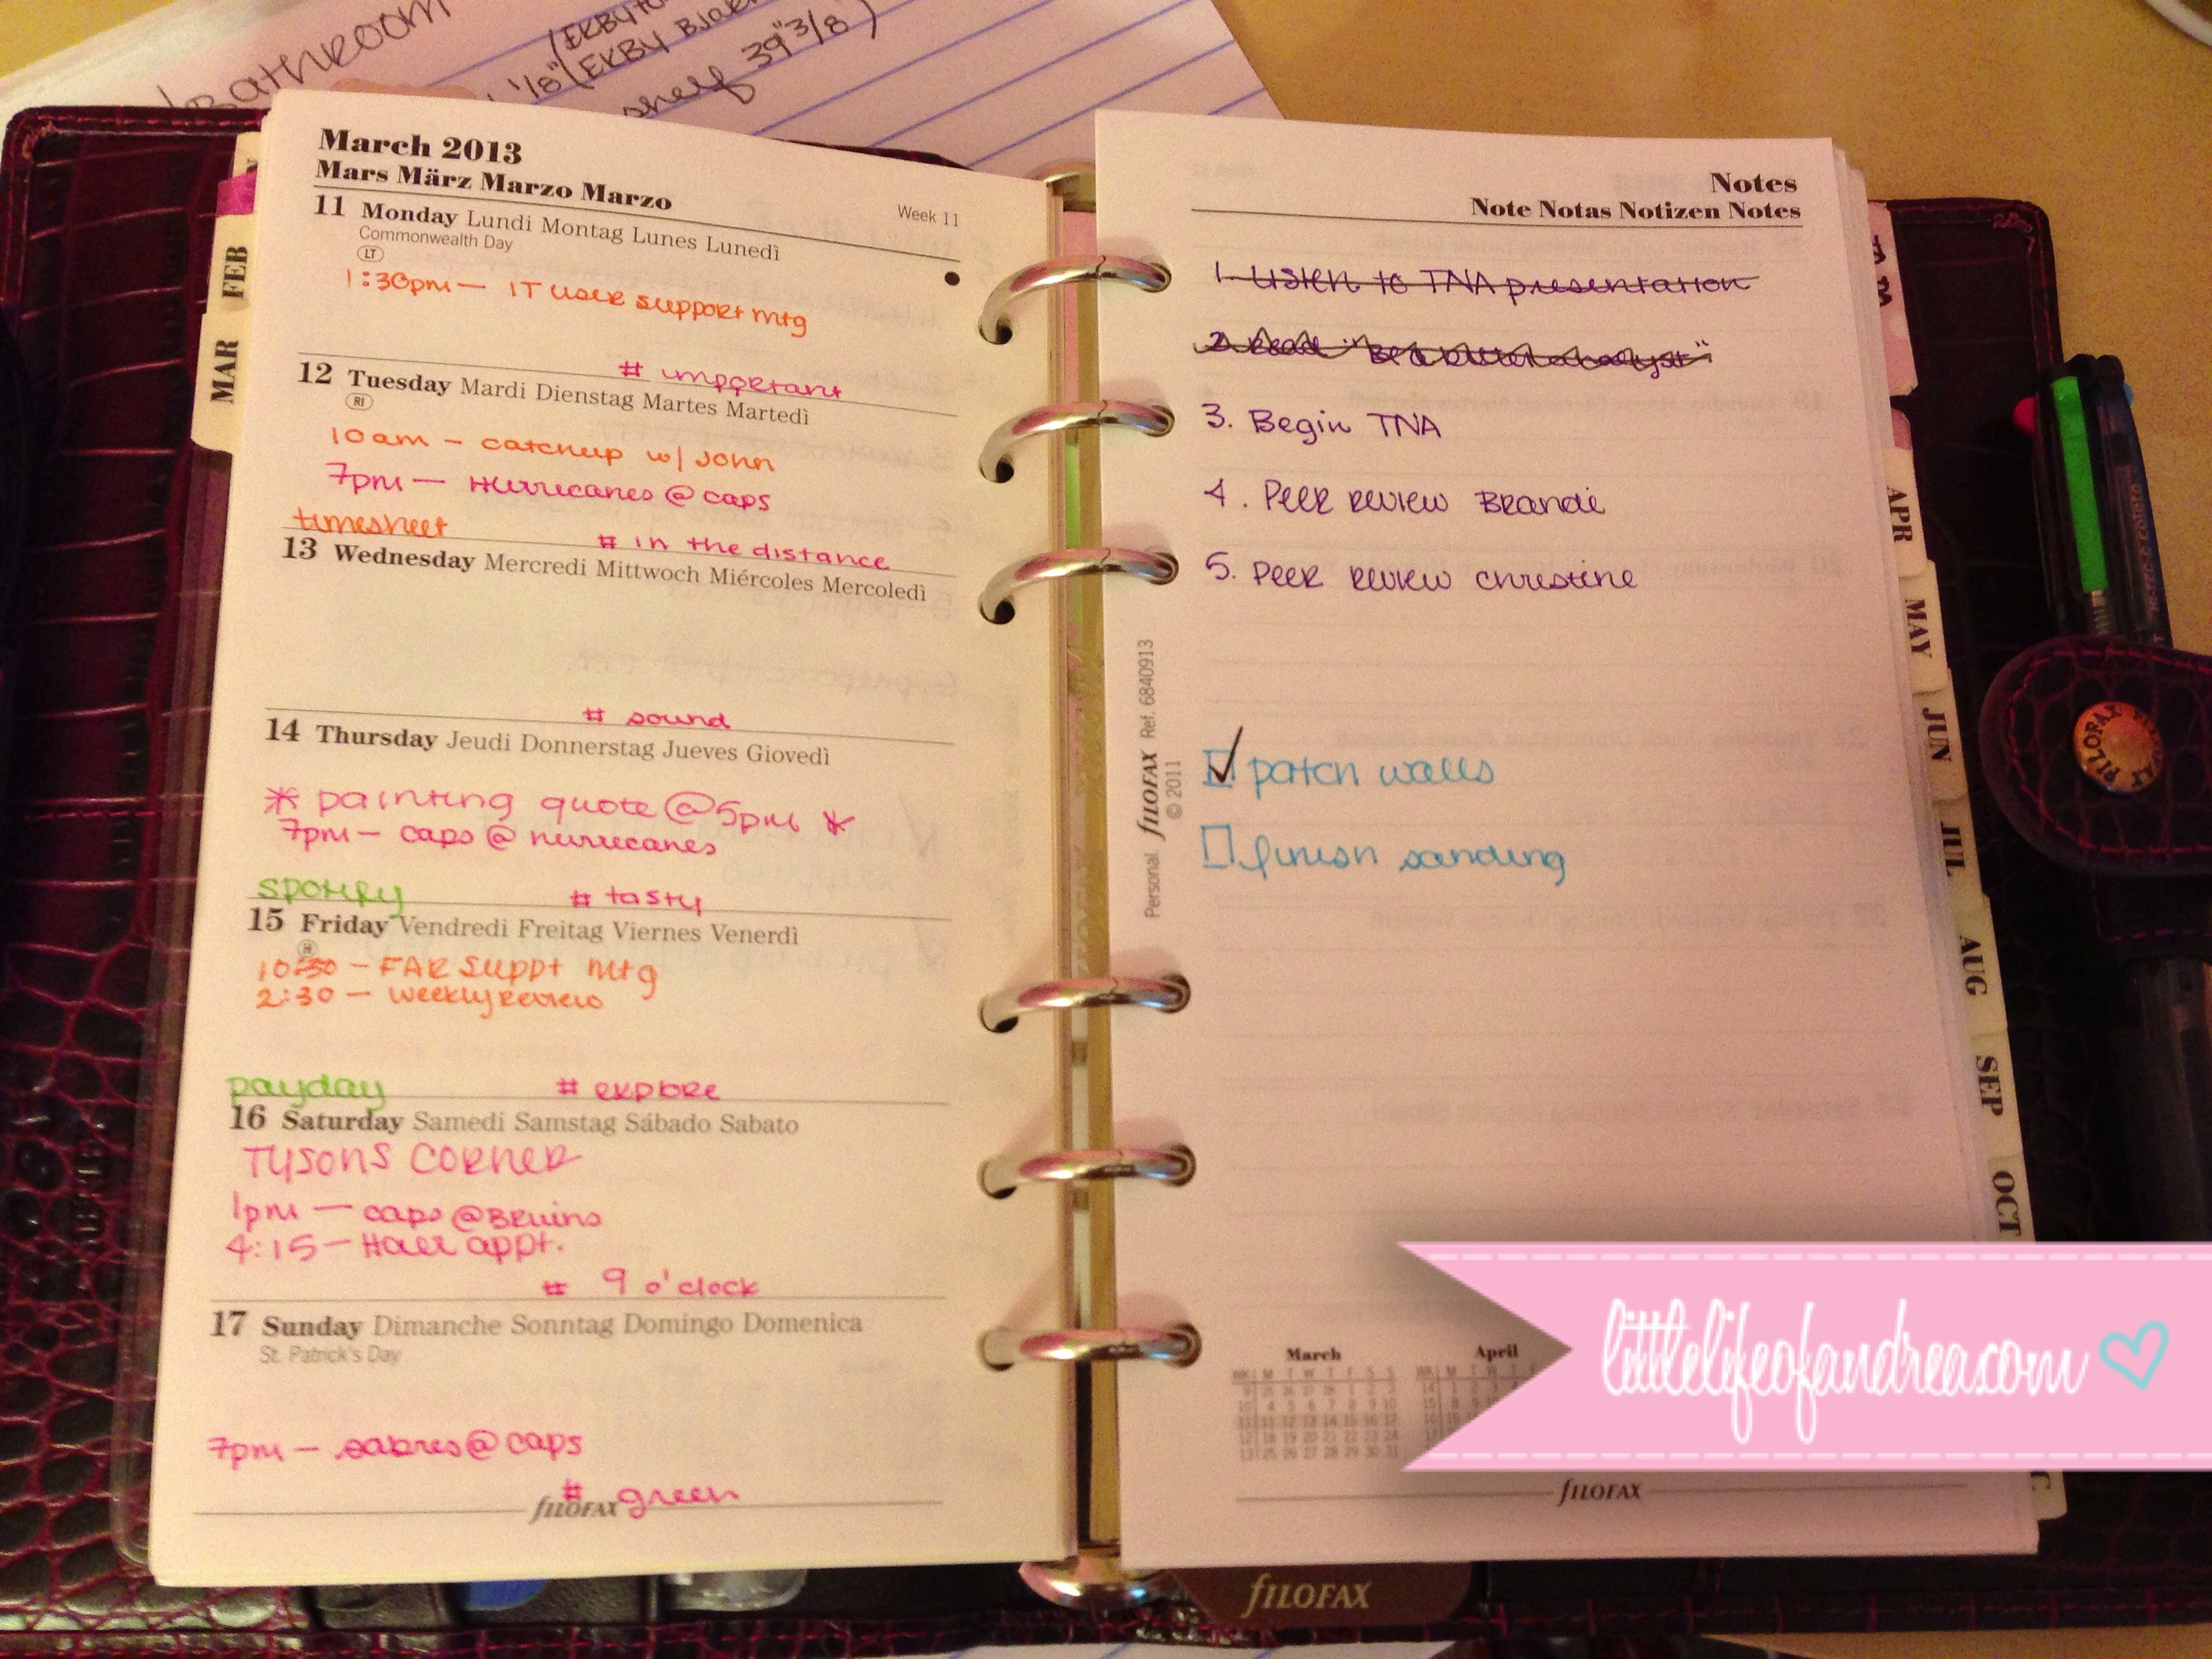 Bathroom
1/8" (EKBY
shelf 39"3/8)
March 2013
Mars März Marzo Marzo
Week 11
11 Monday Lundi Montag Lunes Lunedì
Commonwealth Day
LT
1:30pm — IT user support mtg
# important
12 Tuesday Mardi Dienstag Martes Martedì
RI
10am – catchup w/ John
7pm — Hurricanes @ caps
timesheet # in the distance
13 Wednesday Mercredi Mittwoch Miércoles Mercoledì
# sound
14 Thursday Jeudi Donnerstag Jueves Giovedì
* painting quote @ 5pm *
7pm — caps @ hurricanes
spotify # tasty
15 Friday Vendredi Freitag Viernes Venerdì
H
10:30 — FAR Suppt mtg
2:30 — weekly review
payday # explore
16 Saturday Samedi Samstag Sábado Sabato
Tysons Corner
1pm — caps @ Bruins
4:15 — Hair appt.
# 9 o'clock
17 Sunday Dimanche Sonntag Domingo Domenica
St. Patrick's Day
7pm — sabres @ caps
# green
fILOFAX
FEB
MAR
Notes
Note Notas Notizen Notes
1. Listen to TNA presentation
2. Read "Be a better analyst"
3. Begin TNA
4. Peer review Brandi
5. Peer review Christine
patch walls
finish sanding
Personal fILOFAX Ref. 6840913
© 2011
March April
fILOFAX
APR
MAY
JUN
JUL
AUG
SEP
OCT
FILOFAX
littlelifeofandrea.com
fILOFAX